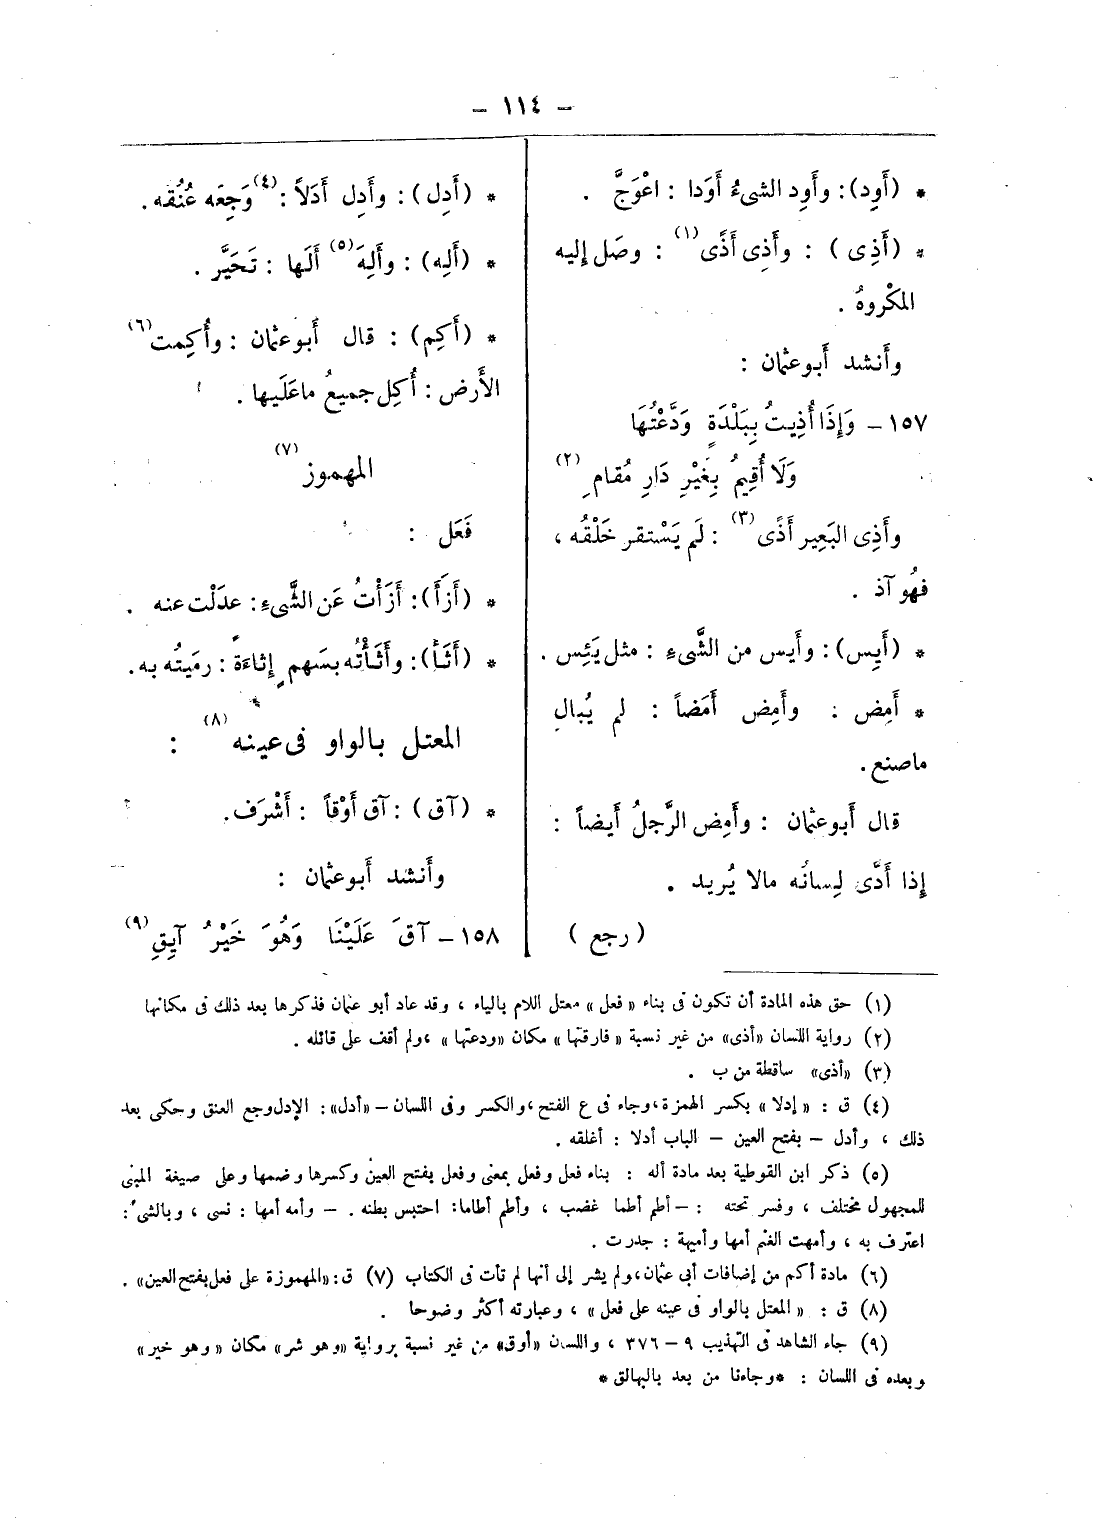 – ١١٤ –
* (أَوِد): وأَوِد الشىءُ أَوَدا : اعْوَجَّ .
* (أَذِى ) : وأَذِى أَذًى(١) : وصَل إليه
المكْروهُ .
وأنشد أبوعثمان :
١٥٧ – وَإِذَا أُذِيتُ بِبَلْدَةٍ وَدَّعْتُهَا
وَلَا أُقِيمُ بِغَيْرِ دَارِ مُقامِ (٢)
وأَذِى البَعِير أَذًى(٣) : لَم يَسْتقر خَلْقُه ،
فهُو آذ .
* (أَيِس): وأَيِس من الشَّىءِ : مثل يَئِس .
* أَمِض : وأَمِض أَمَضاً : لم يُبالِ
ماصنع.
قال أَبوعثمان : وأَمِض الرَّجلُ أَيضاً :
إِذا أَدَّى لِسانُه مالا يُريد .
( رجع )
* (أَدِل) : وأَدِل أَدَلاً :(٤) وَجِعَه عُنُقه .
* (أَلِه) : وأَلِهَ(٥) أَلَها : تَحَيَّر .
* (أَكِم) : قال أَبوعثمان : وأُكِمت(٦)
الأَرض : أُكِل جميعُ ماعَلَيها .
المهموز (٧)
فَعَل :
* (أَزأَ): أَزَأْتُ عَن الشَّىءِ: عدَلْت عنه .
* (أَثَأَ): وأَثَأْتُه بسَهمٍ إِثاءَةً : رميَتُه به.
المعتل بالواو فى عينه (٨) :
* (آق) : آق أَوْقاً : أَشْرَف.
وأنشد أَبوعثمان :
١٥٨ – آقَ عَلَيْنَا وَهُوَ خَيْرُ آيِقِ (٩)
(١) حق هذه المادة أن تكون فى بناء « فعل » معتل اللام بالياء ، وقد عاد أبو عثمان فذكرها بعد ذلك فى مكانها
(٢) رواية اللسان «أذى» من غير نسبة « فارقتها » مكان «ودعتها » ،ولم أقف على قائله .
(٣) «أذى» ساقطة من ب .
(٤) ق : « إدلا » بكسر الهمزة،وجاء فى ع الفتح،والكسر وفى اللسان –«أدل»: الإدل وجع العنق وحكى بعد
ذلك ، وأدل – بفتح العين – الباب أدلا : أغلقه .
(٥) ذكر ابن القوطية بعد مادة أله : بناء فعل وفعل بمعنى وفعل بفتح العين وكسرها وضمها وعلى صيغة المبنى
للمجهول مختلف ، وفسر تحته : –أطم أطما غضب ، وأطم أطاما: احتبس بطنه . – وأمه أمها : نسى ، وبالشىء :
اعترف به ، وأمهت الغنم أمها وأميهة : جدرت .
(٦) مادة أكم من إضافات أبى عثمان،ولم يشر إلى أنها لم تأت فى الكتاب (٧) ق:«المهموزة على فعل بفتح العين» .
(٨) ق : « المعتل بالواو فى عينه على فعل » ، وعبارته أكثر وضوحا .
(٩) جاء الشاهد فى التهذيب ٩ – ٣٧٦ ، واللسان «أوق» من غير نسبة برواية «وهو شر» مكان «وهو خير»
وبعده فى اللسان : *وجاءنا من بعد بالبهالق*